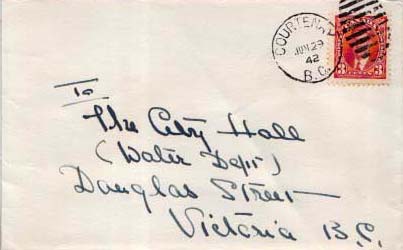 COURTENAY
JUN 29
42
B.C.
3 3
To
The City Hall
(Water Dept)
Douglas Street
Victoria B.C.